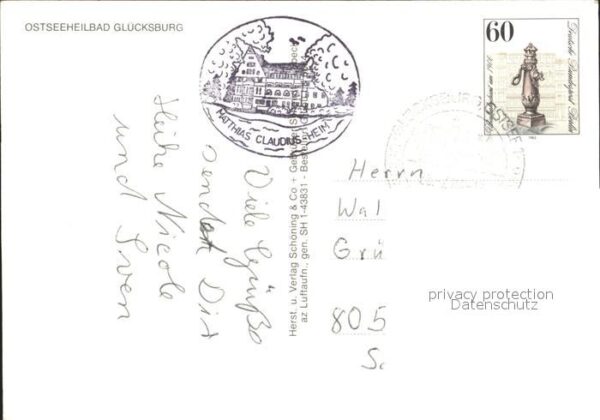 OSTSEEHEILBAD GLÜCKSBURG
MATTHIAS CLAUDIUS-HEIM
Viele Grüße
sendet Dir
Heike Nicole
und Sven
Herst. u. Verlag Schöning & Co + Gebrüder Schmidt
az Luftaufn., gen. SH 1-43831 -
60
Deutsche Bundespost Berlin
GLÜCKSBURG OSTSEE
Herrn
Wal
Grü
805
Sc
privacy protection
Datenschutz